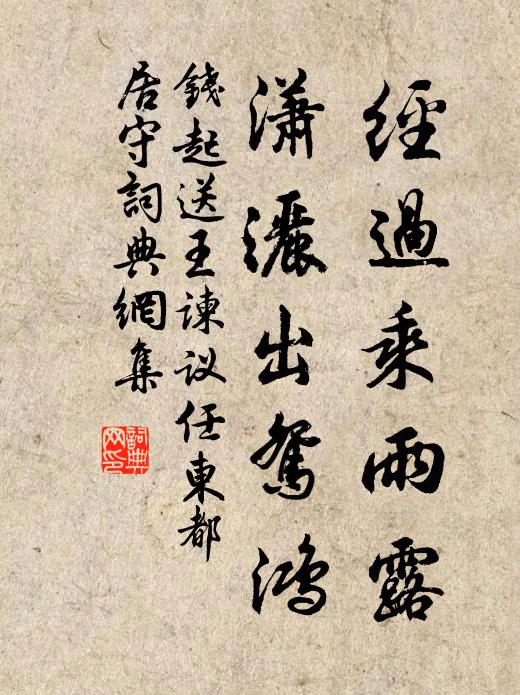 經過乘雨露
瀟灑出鴛鴻
錢起送王諫议任東都
居守詞典網集
詞典
网印